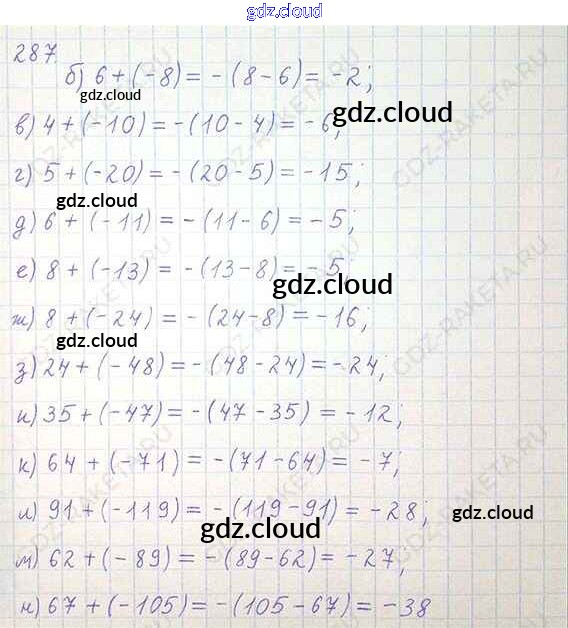 gdz.cloud
287.
б) 6 + (-8) = -(8-6) = -2;
gdz.cloud
gdz.cloud
в) 4 + (-10) = -(10-4) = -6;
г) 5 + (-20) = -(20-5) = -15;
gdz.cloud
д) 6 + (-11) = -(11-6) = -5;
е) 8 + (-13) = -(13-8) = -5
gdz.cloud
ж) 8 + (-24) = -(24-8) = -16;
gdz.cloud
з) 24 + (-48) = -(48-24) = -24;
и) 35 + (-47) = -(47-35) = -12;
к) 64 + (-71) = -(71-64) = -7;
л) 91 + (-119) = -(119-91) = -28;
gdz.cloud
gdz.cloud
м) 62 + (-89) = -(89-62) = -27;
н) 67 + (-105) = -(105-67) = -38
gdz.cloud
GDZ-RAKETA.RU
GDZ-RAKETA.RU
GDZ-RAKETA.RU
GDZ-RAKETA.RU